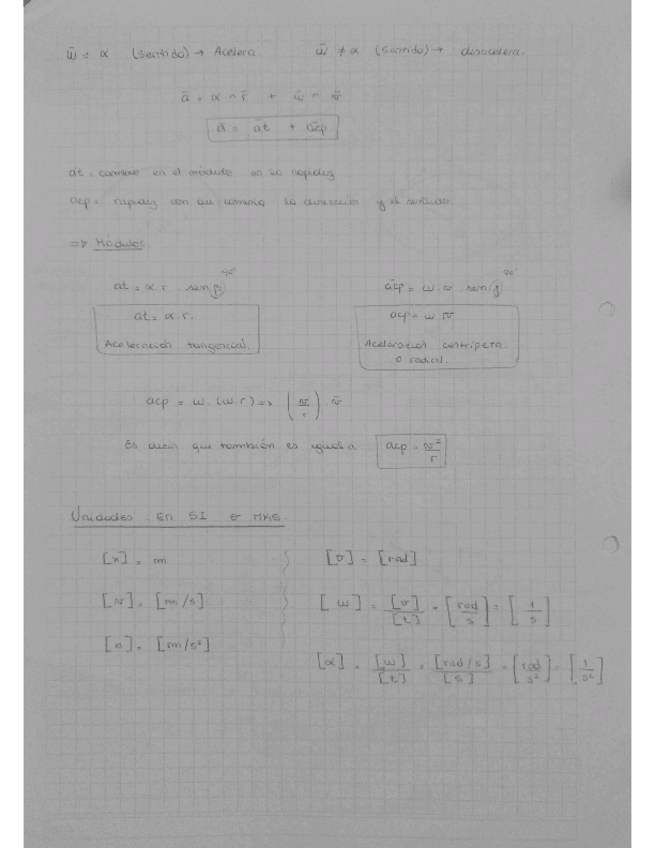 w̄ = α (sentido) → Acelera. w̄ ≠ α (sentido) → desacelera.
ā = α ∧ r̄ + w̄ ∧ v̄
ā = āt + ācp
at = cambio en el módulo en su rapidez
acp = rapidez con que cambia la dirección y el sentido.
=> Módulos.
at = α.r. sen 90° ācp = w.v. sen 90°
at = α.r. acp = w v
Aceleración tangencial. Aceleración centrípeta
o radial.
acp = w.(w.r) => (v/r).v̄
Es decir que también es igual a acp = v²/r
Unidades. En SI o MKS.
[x] = m [θ] = [rad]
[v] = [m/s] [w] = [θ]/[t] = [rad/s] = [1/s]
[a] = [m/s²] [α] = [w]/[t] = [rad/s]/[s] = [rad/s²] = [1/s²]